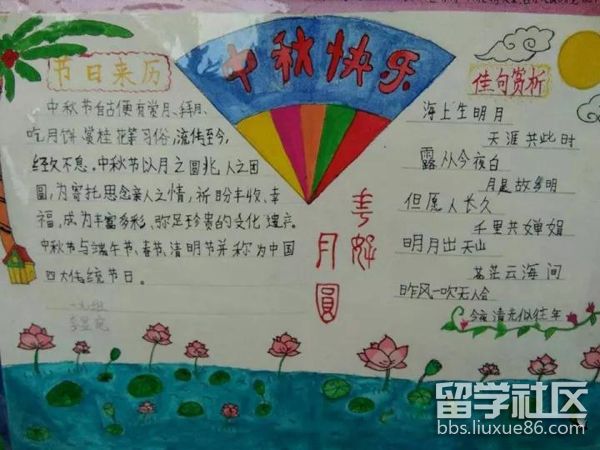 中秋快乐
节日来历
中秋节自古便有赏月、拜月、
吃月饼、赏桂花等习俗,流传至今,
经久不息。中秋节以月之圆兆人之团
圆,为寄托思念亲人之情,祈盼丰收、幸
福,成为丰富多彩、弥足珍贵的文化遗产。
中秋节与端午节、春节、清明节并称为中国
四大传统节日。
月圓
佳句赏析
海上生明月
天涯共此时
露从今夜白
月是故乡明
但愿人长久
千里共婵娟
明月出天山
苍茫云海间
昨风一吹无人会
今夜清光似往年
留学社区
bbs.liuxue86.com